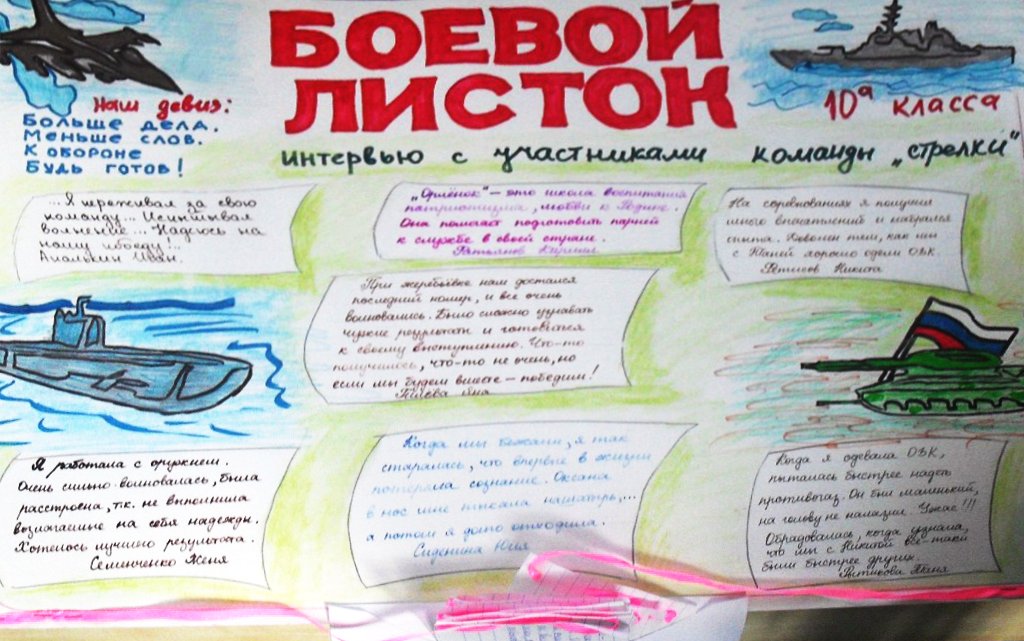 БОЕВОЙ
ЛИСТОК
10а класса
Наш девиз:
Больше дела.
Меньше слов.
К обороне
Будь готов!
интервью с участниками команды „стрелки"
...Я переживал за свою
команду... Испытывал
волнение... Надеюсь на
нашу победу!..
Иван.
„Орлёнок" – это школа воспитания
патриотизма, любви к Родине.
Она помогает подготовить парней
к службе в своей стране.
Кирилл
На соревнованиях я получил
много впечатлений и набрался
опыта. Доволен тем, как мы
с Таней хорошо одели ОЗК.
Никита
При жеребьёвке нам достался
последний номер, и все очень
волновались. Было сложно узнавать
чужие результаты и готовиться
к своему выступлению. Что-то
получилось, что-то не очень, но
если мы будем вместе – победим!
Яна
Я работала с оружием.
Очень сильно волновалась, была
расстроена, т.к. не выполнила
возлагаемые на себя надежды.
Хотелось лучшего результата.
Семенченко Женя
Когда мы бежали, я так
старалась, что впервые в жизни
потеряла сознание. Оксана
в нос мне пихала нашатырь,...
а потом я долго отходила.
Сиденина Юля
Когда я одевала ОЗК,
пыталась быстрее надеть
противогаз. Он был маленький,
на голову не налазил. Ужас!!!
Обрадовалась, когда узнала,
что мы с Никитой всё-таки
были быстрее других.
Таня